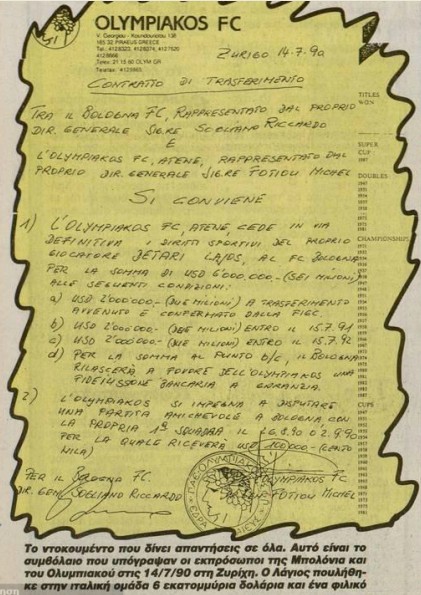 OLYMPIAKOS FC
V. Georgiou - Kountouriotou 138
185 32 PIRAEUS GREECE
Tel.: 4128323, 4174274, 4127520
4128666
Telex: 21 15 60 OLYM GR
Telefax: 4128865
ZURIGO 14.7.90
CONTRATTO DI TRASFERIMENTO
TRA IL BOLOGNA FC, RAPPRESENTATO DAL PROPRIO
DIR. GENERALE SIG.RE SOGLIANO RICCARDO
E
L'OLYMPIAKOS FC, ATENE, RAPPRESENTATO DAL
PROPRIO DIR. GENERALE SIG.RE FOTIOU MICHEL
SI CONVIENE
1) L'OLYMPIAKOS FC, ATENE, CEDE IN VIA
DEFINITIVA I DIRITTI SPORTIVI DEL PROPRIO
GIOCATORE DETARI LAJOS, AL FC BOLOGNA
PER LA SOMMA DI USD 6'000'000,- (SEI MILIONI)
ALLE SEGUENTI CONDIZIONI:
a) USD 2'000'000,- (DUE MILIONI) A TRASFERIMENTO
AVVENUTO E CONFERMATO DALLA FIGC.
b) USD 2'000'000,- (DUE MILIONI) ENTRO IL 15.7.91
c) USD 2'000'000,- (DUE MILIONI) ENTRO IL 15.7.92
d) PER LA SOMMA AL PUNTO b/c, IL BOLOGNA
RILASCERÀ A FAVORE DELL'OLYMPIAKOS UNA
FIDEJUSSIONE BANCARIA A GARANZIA.
2) L'OLYMPIAKOS SI IMPEGNA A DISPUTARE
UNA PARTITA AMICHEVOLE A BOLOGNA CON
LA PROPRIA 1ª SQUADRA IL O 2.9.90
PER LA QUALE RICEVERÀ USD 100'000,- (CENTO
MILA)
PER IL BOLOGNA FC. OLYMPIAKOS FC
DIR. GEN. SOGLIANO RICCARDO FOTIOU MICHEL
TITLES
WON
SUPER
CUP
DOUBLES
CHAMPIONSHIPS
CUPS
Το ντοκουμέντο που δίνει απαντήσεις σε όλα. Αυτό είναι το
συμβόλαιο που υπόγραψαν οι εκπρόσωποι της Μπολόνια και
του Ολυμπιακού στις 14/7/90 στη Ζυρίχη. Ο Λάγιος πουλήθη-
κε στην ιταλική ομάδα 6 εκατομμύρια δολάρια και ένα φιλικό